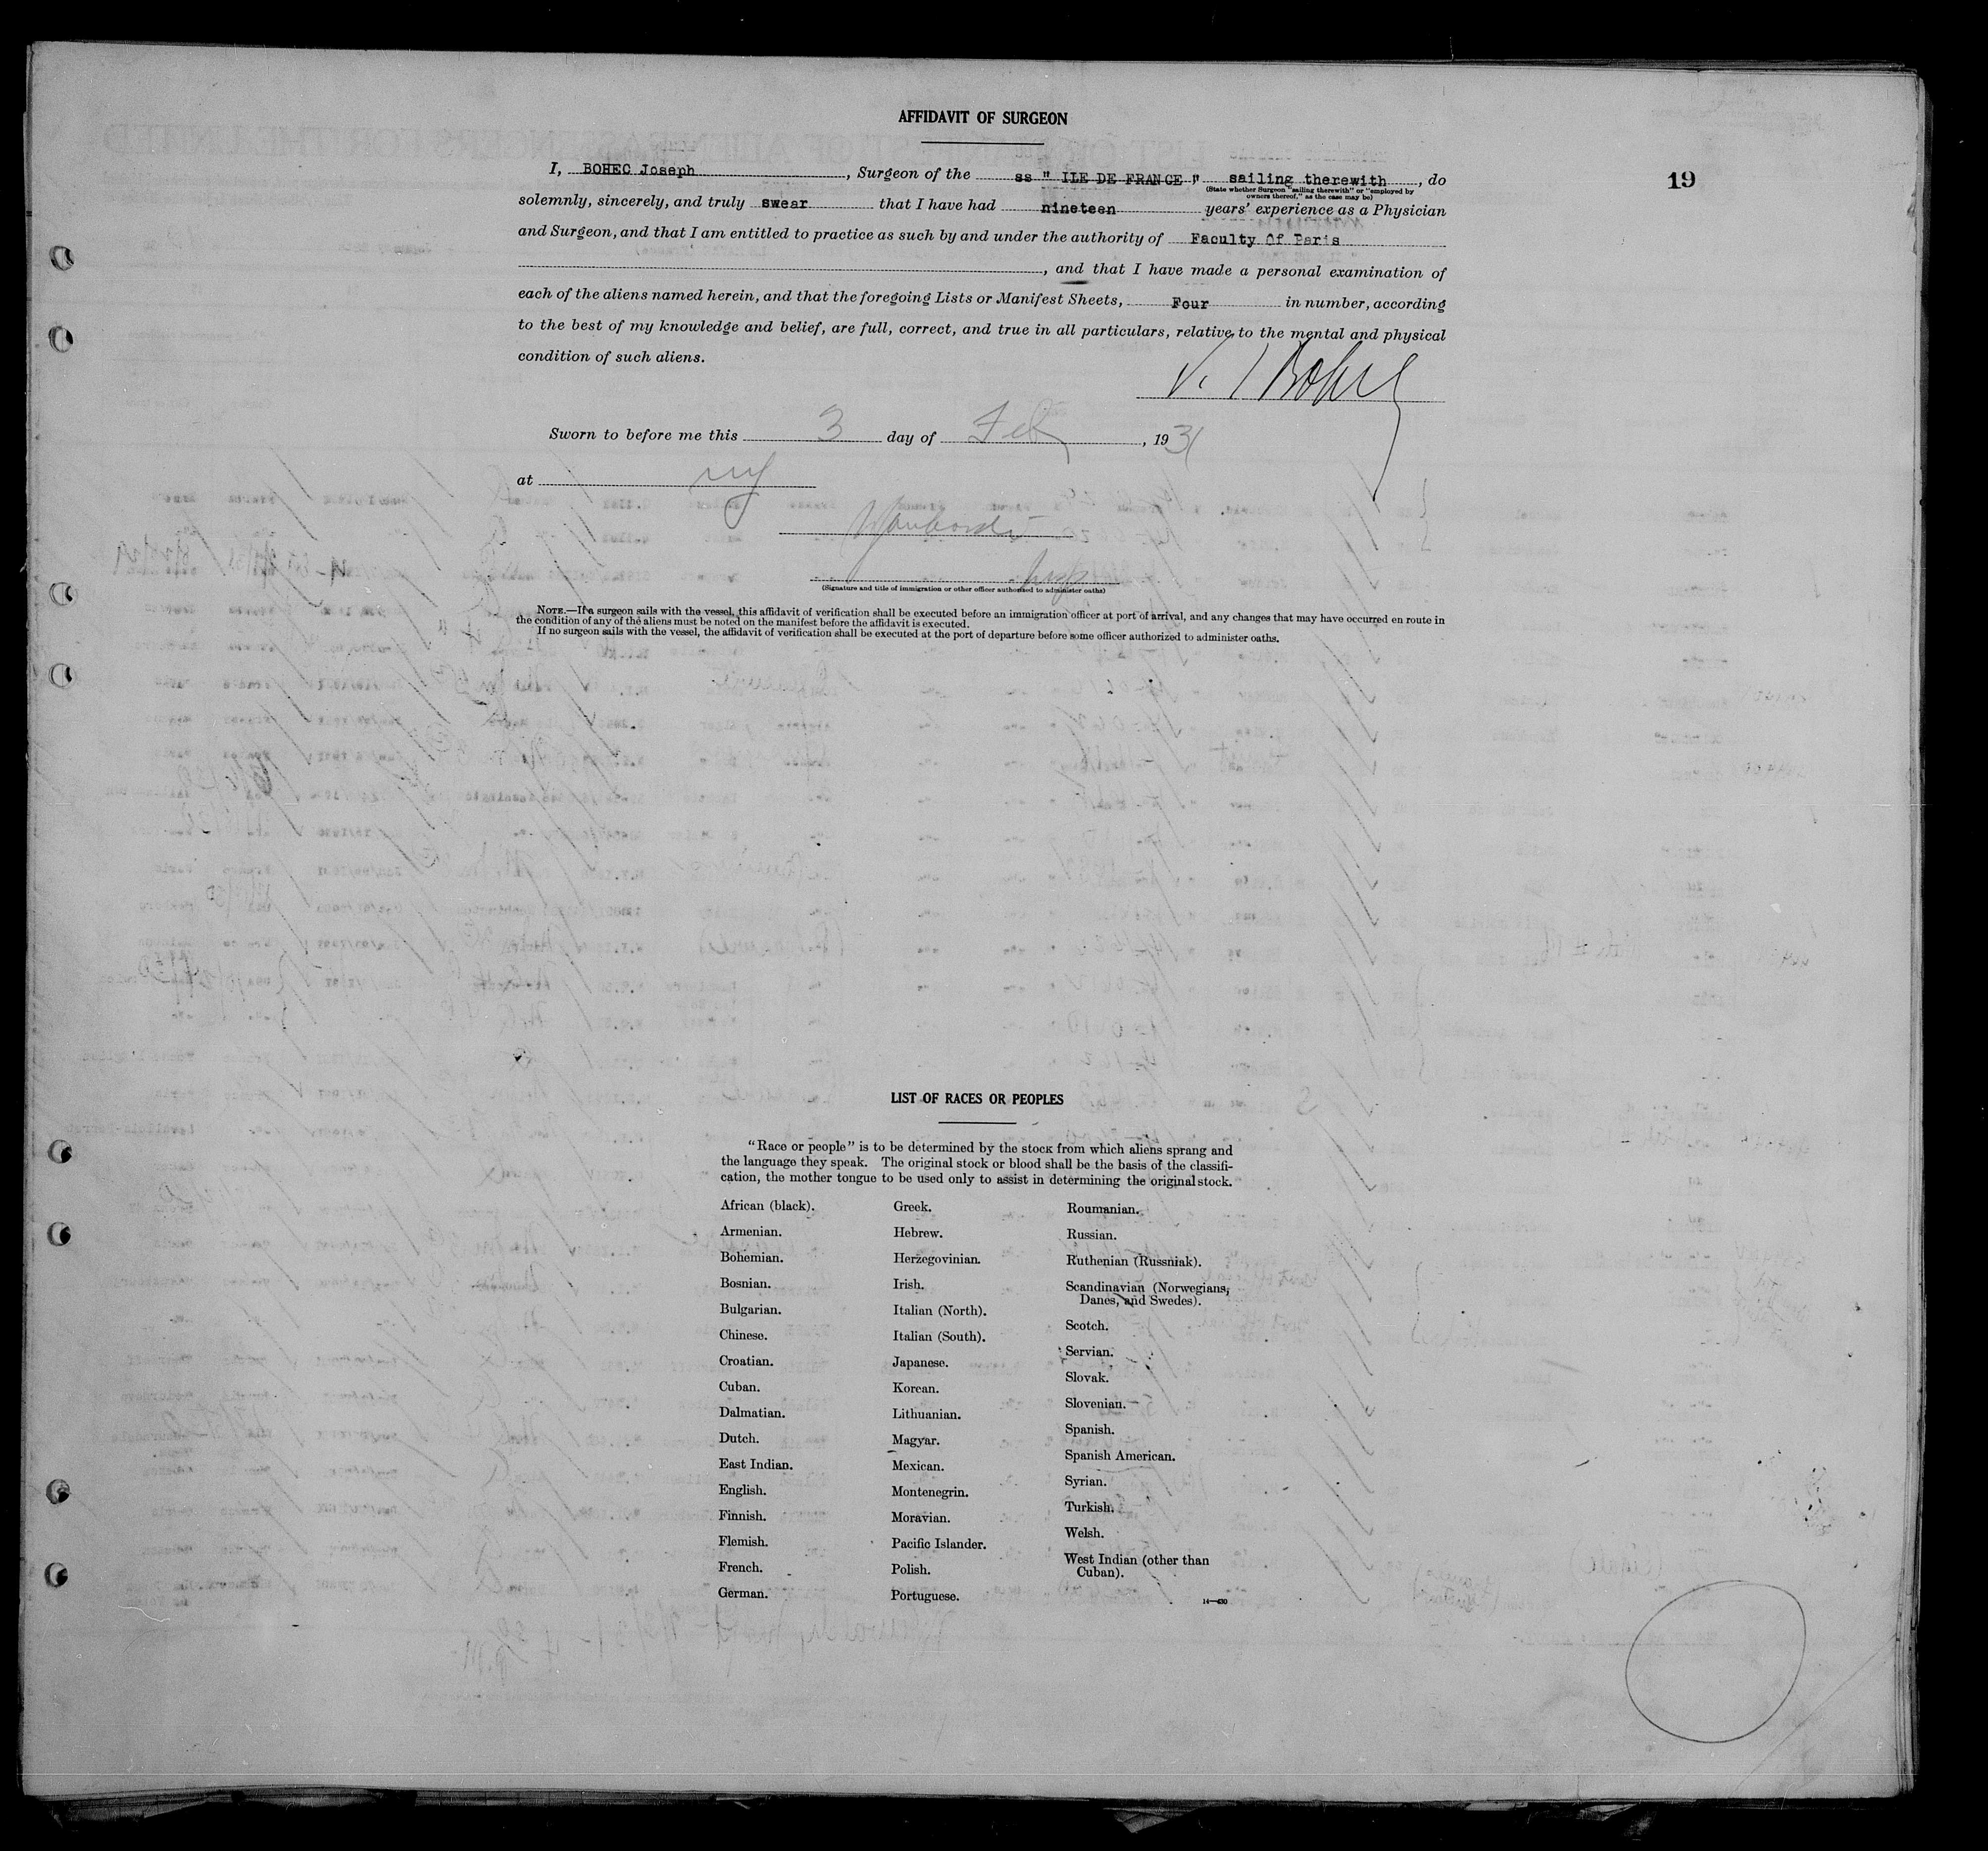 AFFIDAVIT OF SURGEON
19
I, BOHEC Joseph, Surgeon of the ss " ILE DE FRANCE " sailing therewith, do
(State whether Surgeon "sailing therewith" or "employed by
owners thereof," as the case may be)
solemnly, sincerely, and truly swear that I have had nineteen years' experience as a Physician
and Surgeon, and that I am entitled to practice as such by and under the authority of Faculty Of Paris
, and that I have made a personal examination of
each of the aliens named herein, and that the foregoing Lists or Manifest Sheets, Four in number, according
to the best of my knowledge and belief, are full, correct, and true in all particulars, relative to the mental and physical
condition of such aliens.
Bohec
Sworn to before me this 3 day of Feb, 1931
at NY
Insp
(Signature and title of immigration or other officer authorized to administer oaths)
NOTE.—If a surgeon sails with the vessel, this affidavit of verification shall be executed before an immigration officer at port of arrival, and any changes that may have occurred en route in
the condition of any of the aliens must be noted on the manifest before the affidavit is executed.
If no surgeon sails with the vessel, the affidavit of verification shall be executed at the port of departure before some officer authorized to administer oaths.
LIST OF RACES OR PEOPLES
"Race or people" is to be determined by the stock from which aliens sprang and
the language they speak. The original stock or blood shall be the basis of the classifi-
cation, the mother tongue to be used only to assist in determining the original stock.
African (black).
Armenian.
Bohemian.
Bosnian.
Bulgarian.
Chinese.
Croatian.
Cuban.
Dalmatian.
Dutch.
East Indian.
English.
Finnish.
Flemish.
French.
German.
Greek.
Hebrew.
Herzegovinian.
Irish.
Italian (North).
Italian (South).
Japanese.
Korean.
Lithuanian.
Magyar.
Mexican.
Montenegrin.
Moravian.
Pacific Islander.
Polish.
Portuguese.
Roumanian.
Russian.
Ruthenian (Russniak).
Scandinavian (Norwegians,
Danes, and Swedes).
Scotch.
Servian.
Slovak.
Slovenian.
Spanish.
Spanish American.
Syrian.
Turkish.
Welsh.
West Indian (other than
Cuban).
14—430